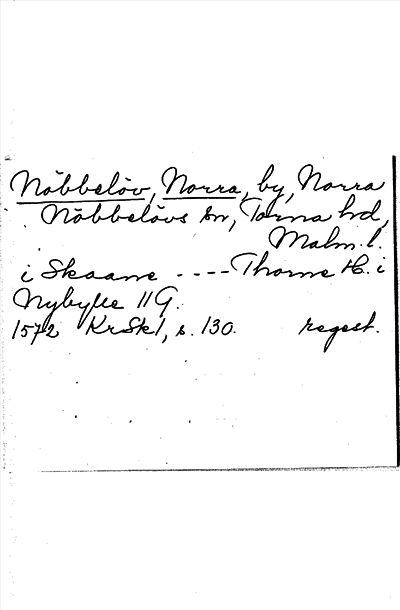 Nöbbelöv, Norra, by, Norra
Nöbbelövs sn, Torna hd,
Malm. l.
i Skaane ---- Thorne H. i
Nybylle 11 G.
1572 KrSk1, s. 130. regest.